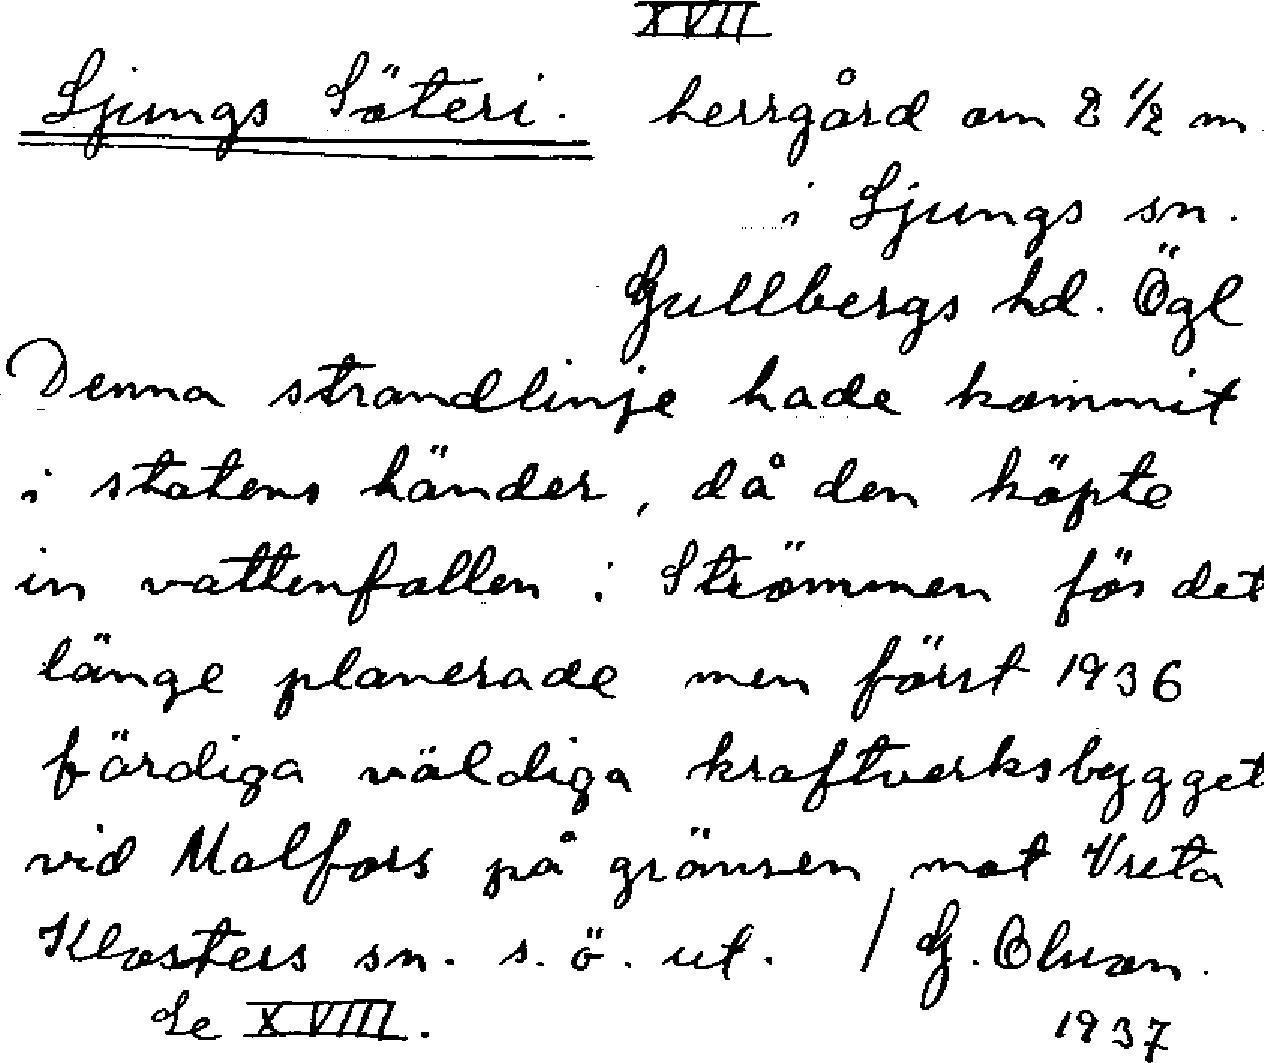 XVII
Ljungs Säteri. herrgård om 2 1/2 m
i Ljungs sn.
Gullbergs hd. Ögl
Denna strandlinje hade kommit
i statens händer, då den köpte
in vattenfallen i Strömmen för det
länge planerade men först 1936
färdiga väldiga kraftverksbygget
vid Malfors på gränsen mot Vreta
Klosters sn. s. ö. ut. / G. Olsson.
Se XVIII. 1937